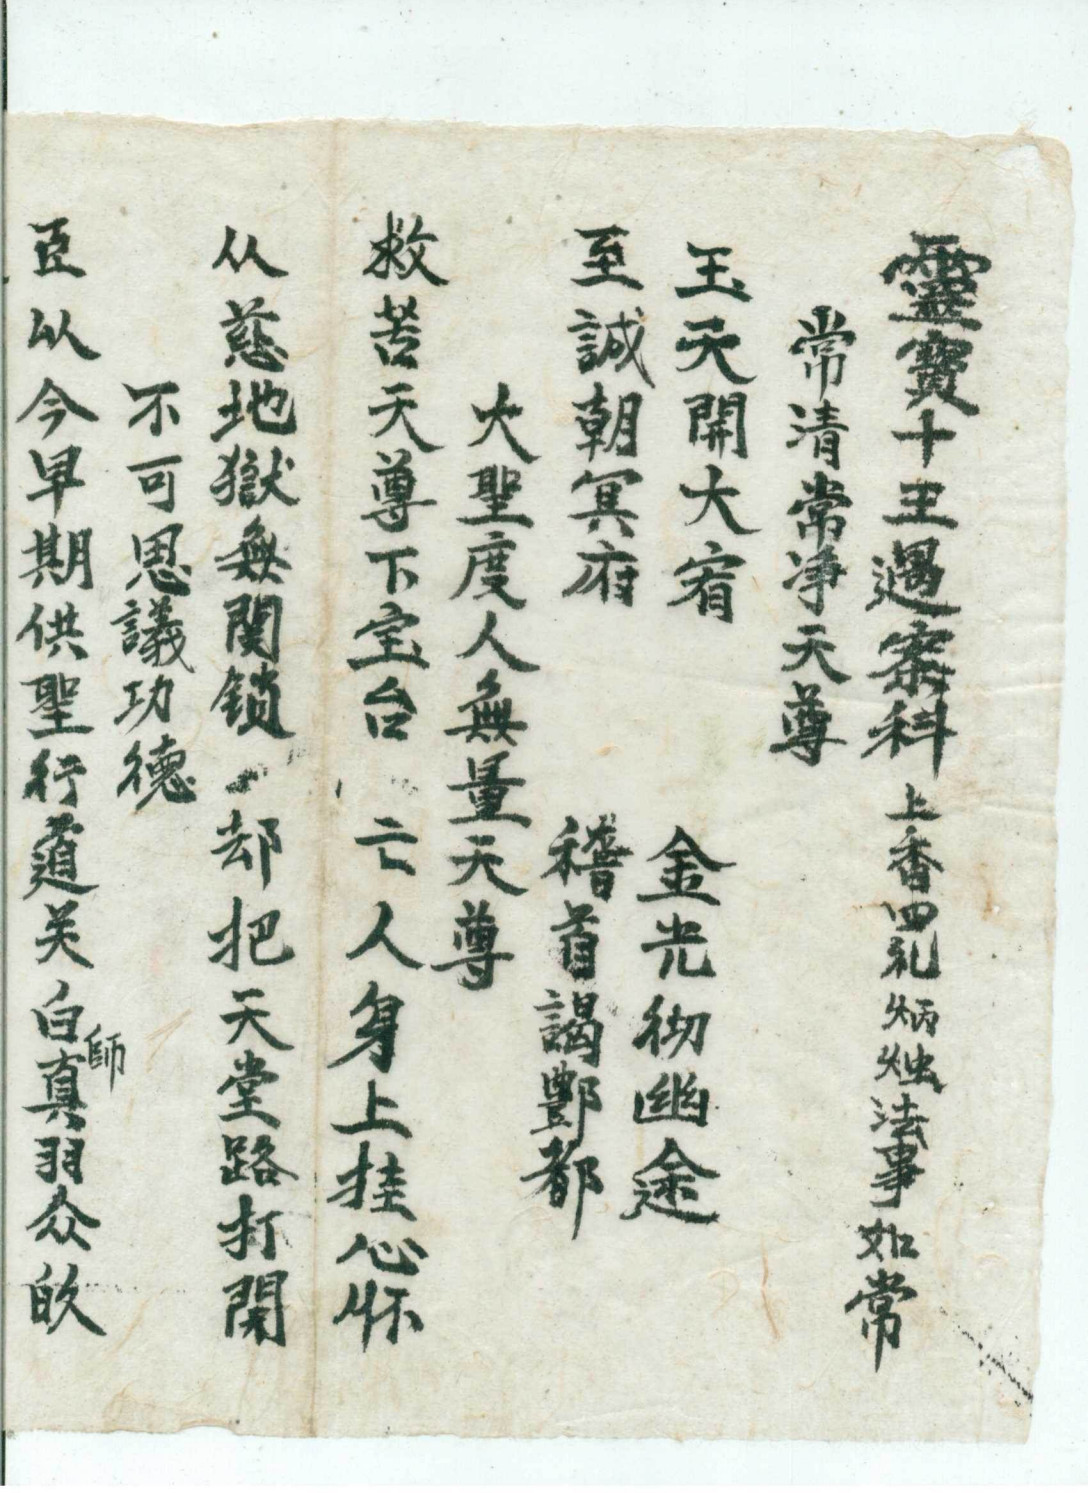 靈寶十王遇案科 上香四礼炳烛法事如常
常清常净天尊
玉天開大宥 金光彻幽途
至誠朝冥府 稽首謁酆都
大聖度人無量天尊
救苦天尊下宝台 亡人身上挂心怀
从慈地獄無関鎖 却把天堂路打開
不可思議功德
臣以今早期供聖行道关白真師羽众皈